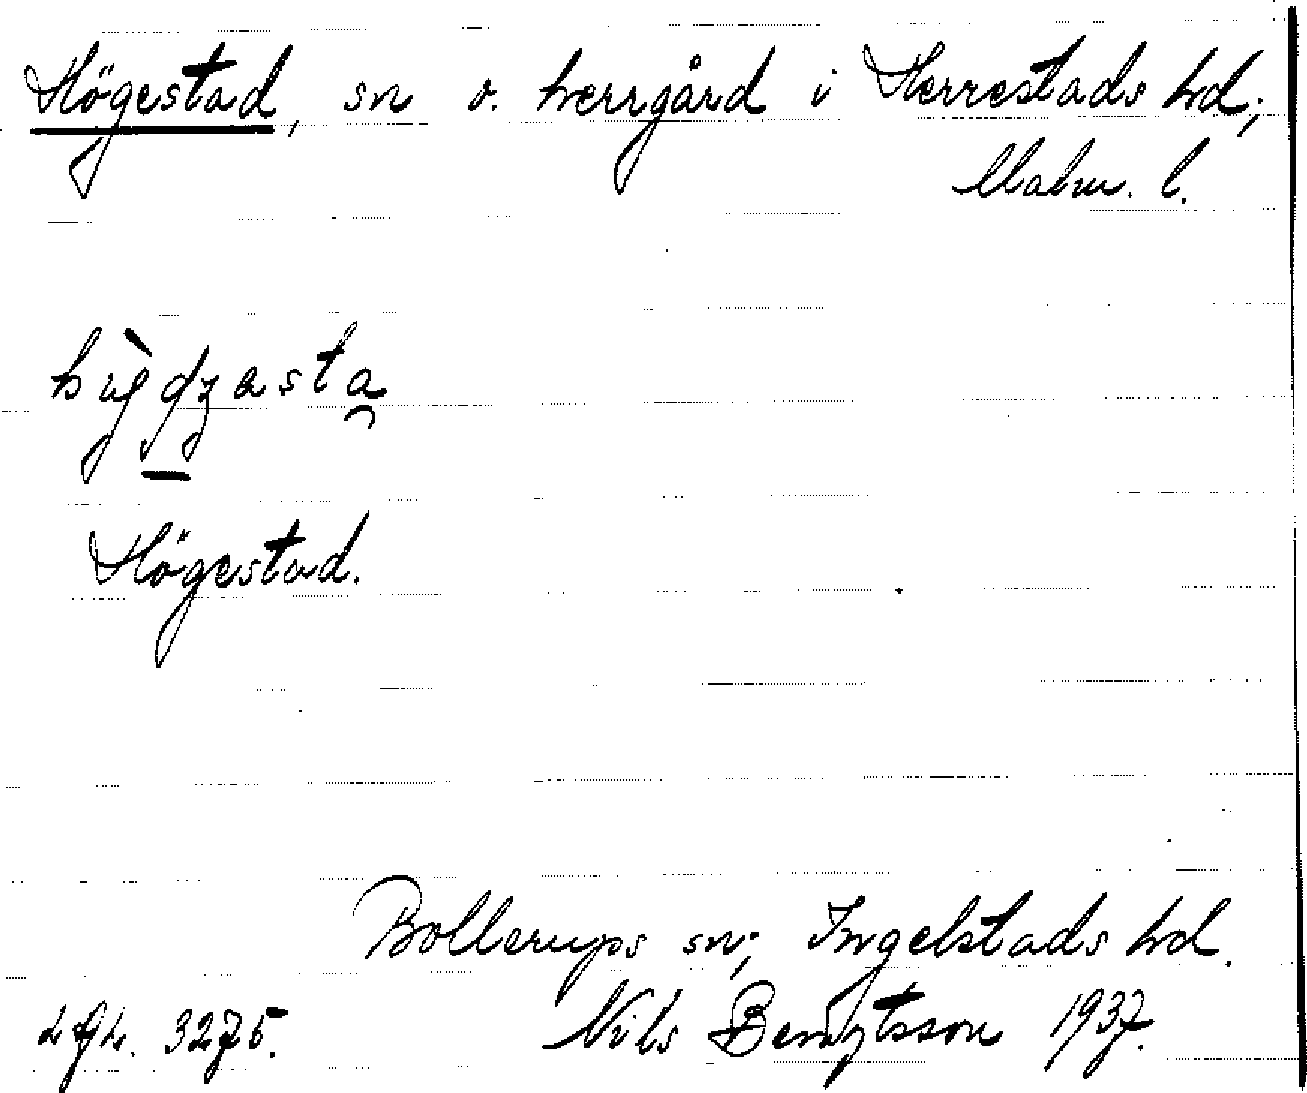 Högestad, sn o. herrgård i Herrestads hd;
Malm. l.
Högestad.
Bollerups sn; Ingelstads hd.
3275. Nils Bengtsson 1937.